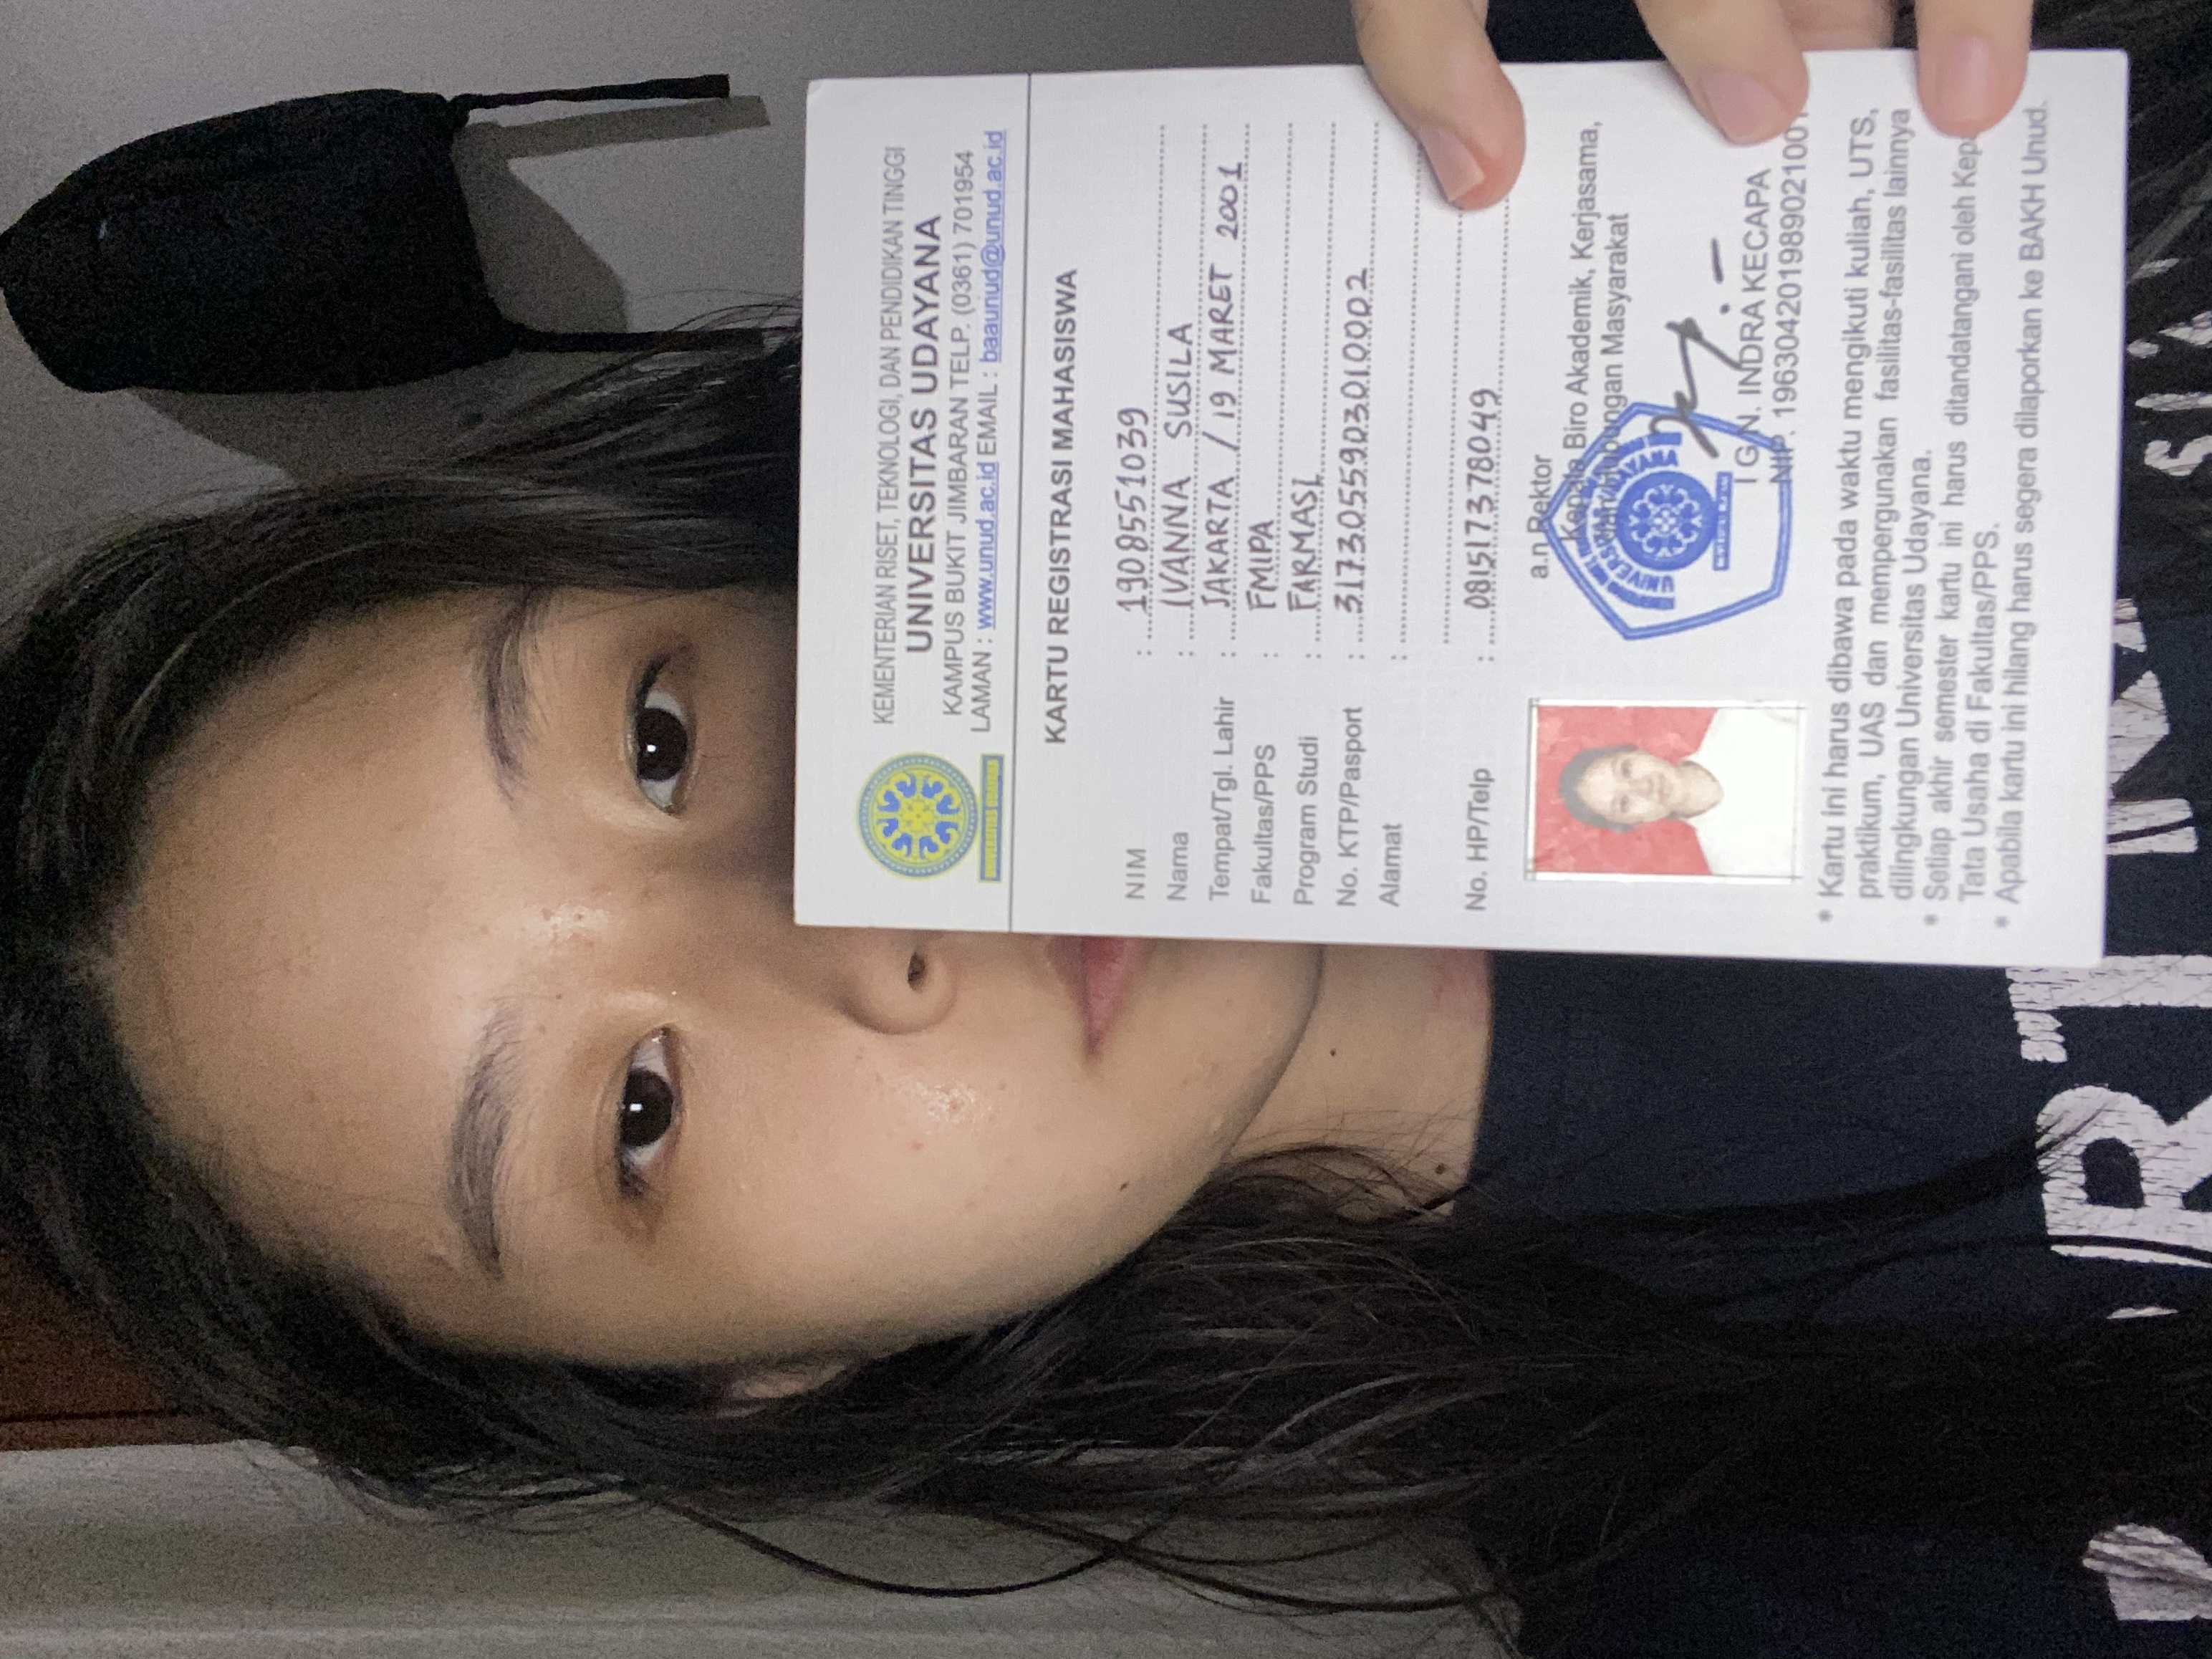 KEMENTERIAN RISET, TEKNOLOGI, DAN PENDIDIKAN TINGGI
UNIVERSITAS UDAYANA
KAMPUS BUKIT JIMBARAN TELP. (0361) 701954
LAMAN : www.unud.ac.id EMAIL : baaunud@unud.ac.id
KARTU REGISTRASI MAHASISWA
NIM : 1908551039
Nama : IVANNA SUSILA
Tempat/Tgl. Lahir : JAKARTA / 19 MARET 2001
Fakultas/PPS : FMIPA
Program Studi : FARMASI
No. KTP/Pasport : 3173055903010002
Alamat :
No. HP/Telp : 081517378049
a.n Rektor
Kepala Biro Akademik, Kerjasama,
dan Hubungan Masyarakat
I G.N. INDRA KECAPA
NIP. 19630420198902100
* Kartu ini harus dibawa pada waktu mengikuti kuliah, UTS,
praktikum, UAS dan mempergunakan fasilitas-fasilitas lainnya
dilingkungan Universitas Udayana.
* Setiap akhir semester kartu ini harus ditandatangani oleh Kep
Tata Usaha di Fakultas/PPS.
* Apabila kartu ini hilang harus segera dilaporkan ke BAKH Unud.